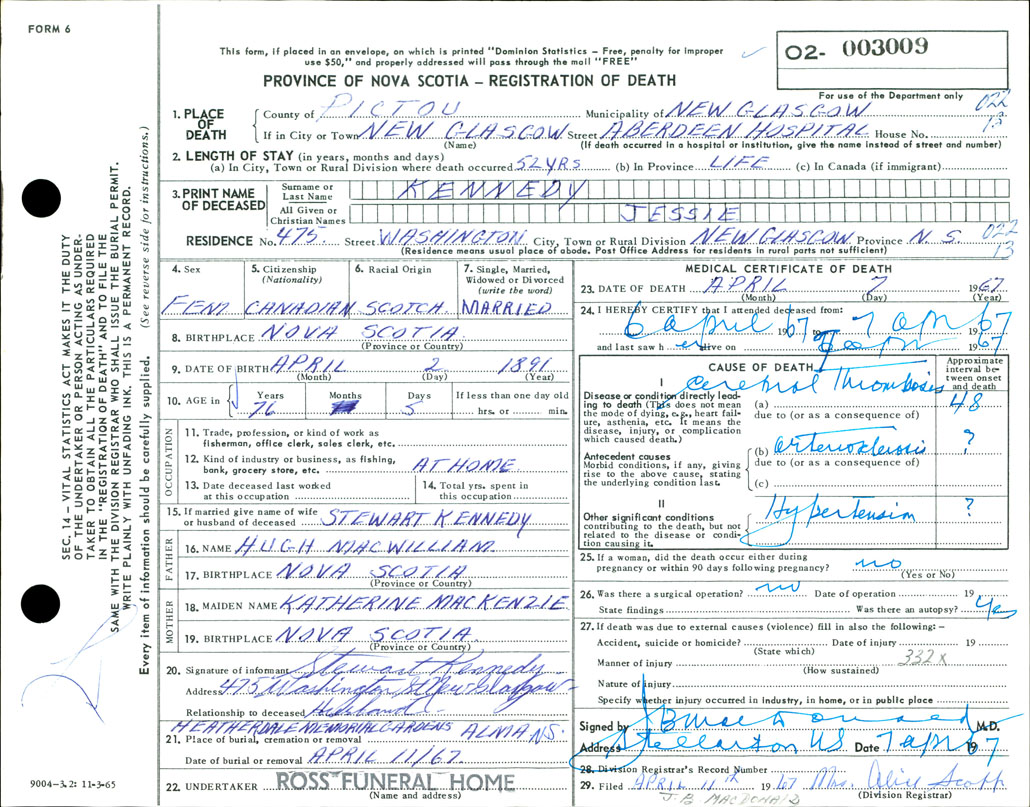 FORM 6
This form, if placed in an envelope, on which is printed "Dominion Statistics – Free, penalty for improper
use $50," and properly addressed will pass through the mail "FREE"
O2- 003009
PROVINCE OF NOVA SCOTIA – REGISTRATION OF DEATH
For use of the Department only
1. PLACE OF DEATH
County of PICTOU Municipality of NEW GLASGOW 022
If in City or Town NEW GLASGOW Street ABERDEEN HOSPITAL House No. 13
(Name) (If death occurred in a hospital or institution, give the name instead of street and number)
2. LENGTH OF STAY (in years, months and days)
(a) In City, Town or Rural Division where death occurred 52 YRS (b) In Province LIFE (c) In Canada (if immigrant)
3. PRINT NAME OF DECEASED
Surname or Last Name KENNEDY
All Given or Christian Names JESSIE
RESIDENCE No. 475 Street WASHINGTON City, Town or Rural Division NEW GLASGOW Province N. S. 022
(Residence means usual place of abode. Post Office Address for residents in rural parts not sufficient) 13
4. Sex
FEM
5. Citizenship
(Nationality)
CANADIAN
6. Racial Origin
SCOTCH
7. Single, Married,
Widowed or Divorced
(write the word)
MARRIED
8. BIRTHPLACE NOVA SCOTIA
(Province or Country)
9. DATE OF BIRTH APRIL 2 1891
(Month) (Day) (Year)
10. AGE in Years Months Days If less than one day old
76 5 hrs. or min.
OCCUPATION
11. Trade, profession, or kind of work as
fisherman, office clerk, sales clerk, etc.
12. Kind of industry or business, as fishing,
bank, grocery store, etc. AT HOME
13. Date deceased last worked
at this occupation
14. Total yrs. spent in
this occupation
15. If married give name of wife
or husband of deceased STEWART KENNEDY
FATHER
16. NAME HUGH MACWILLIAM
17. BIRTHPLACE NOVA SCOTIA
(Province or Country)
MOTHER
18. MAIDEN NAME KATHERINE MACKENZIE
19. BIRTHPLACE NOVA SCOTIA
(Province or Country)
20. Signature of informant Stewart Kennedy
Address 475 Washington St New Glasgow
Relationship to deceased Husband
HEATHERDALE MEMORIAL GARDENS ALMA N.S.
21. Place of burial, cremation or removal
Date of burial or removal APRIL 11/67
22. UNDERTAKER ROSS FUNERAL HOME
(Name and address)
MEDICAL CERTIFICATE OF DEATH
23. DATE OF DEATH APRIL 7 1967
(Month) (Day) (Year)
24. I HEREBY CERTIFY that I attended deceased from:
6 april 1967 to 7 apr 67
and last saw her alive on 7 apr 1967
CAUSE OF DEATH
Approximate
interval be-
tween onset
and death
I
Cerebral Thrombosis
Disease or condition directly lead-
ing to death (This does not mean
the mode of dying, e.g., heart fail-
ure, asthenia, etc. It means the
disease, injury, or complication
which caused death.)
(a) 48
due to (or as a consequence of)
Antecedent causes
Morbid conditions, if any, giving
rise to the above cause, stating
the underlying condition last.
(b) arteriosclerosis ?
due to (or as a consequence of)
(c)
II
Other significant conditions
contributing to the death, but not
related to the disease or condi-
tion causing it.
Hypertension ?
25. If a woman, did the death occur either during
pregnancy or within 90 days following pregnancy? no
(Yes or No)
26. Was there a surgical operation? no Date of operation 19
State findings Was there an autopsy? Yes
27. If death was due to external causes (violence) fill in also the following: –
Accident, suicide or homicide? Date of injury 19
(State which)
332X
Manner of injury
(How sustained)
Nature of injury
Specify whether injury occurred in industry, in home, or in public place
Signed by M.D.
Address Stellarton NS Date 7 apr 1967
28. Division Registrar's Record Number
29. Filed APRIL 11th 1967 Mrs. Alice Scopp
J-B MACDONALD (Division Registrar)
SEC. 14 – VITAL STATISTICS ACT MAKES IT THE DUTY
OF THE UNDERTAKER OR PERSON ACTING AS UNDER-
TAKER TO OBTAIN ALL THE PARTICULARS REQUIRED
IN THE "REGISTRATION OF DEATH" AND TO FILE THE
SAME WITH THE DIVISION REGISTRAR WHO SHALL ISSUE THE BURIAL PERMIT.
WRITE PLAINLY WITH UNFADING INK. THIS IS A PERMANENT RECORD.
Every item of information should be carefully supplied. (See reverse side for instructions.)
9004-3.2: 11-3-65